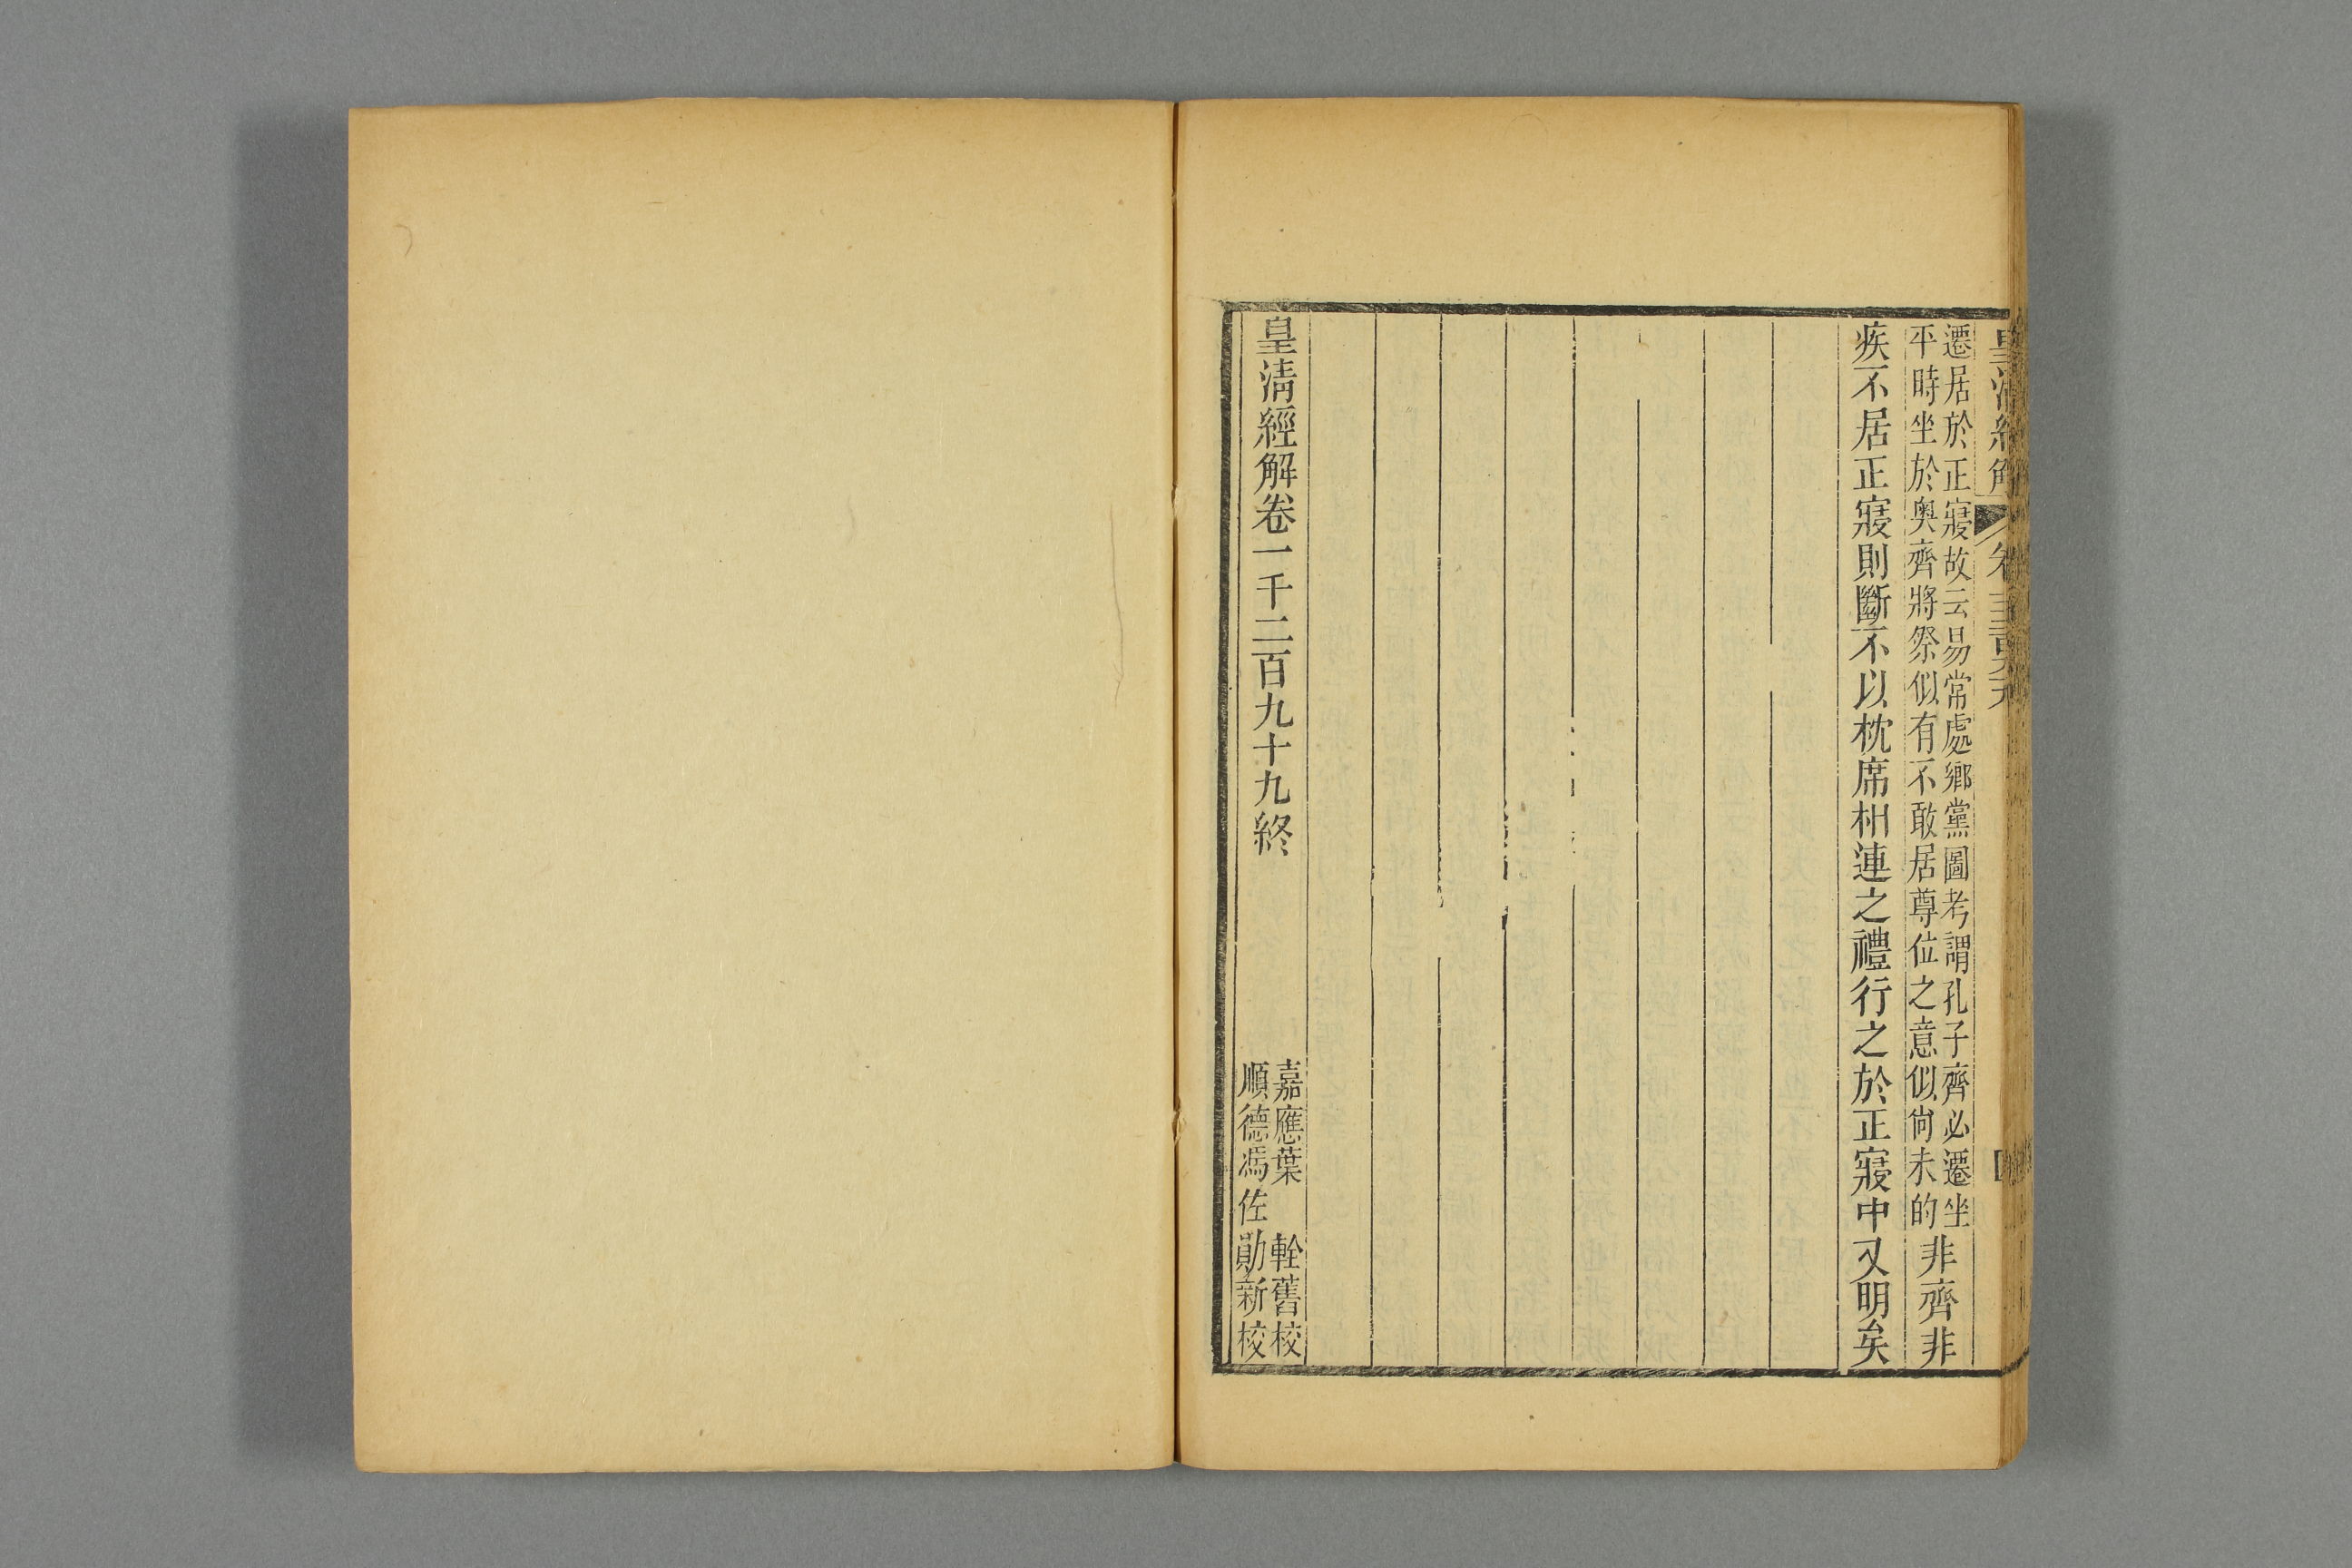 皇清經解
遷居於正寢故云易常處鄉黨圖考謂孔子齊必遷坐
平時坐於奧齊將祭似有不敢居尊位之意似尙未的
非齊非
疾不居正寢則斷不以枕席相連之禮行之於正寢中又明矣
皇清經解卷一千二百九十九終
嘉應葉 輇舊校
順德馮佐勛新校